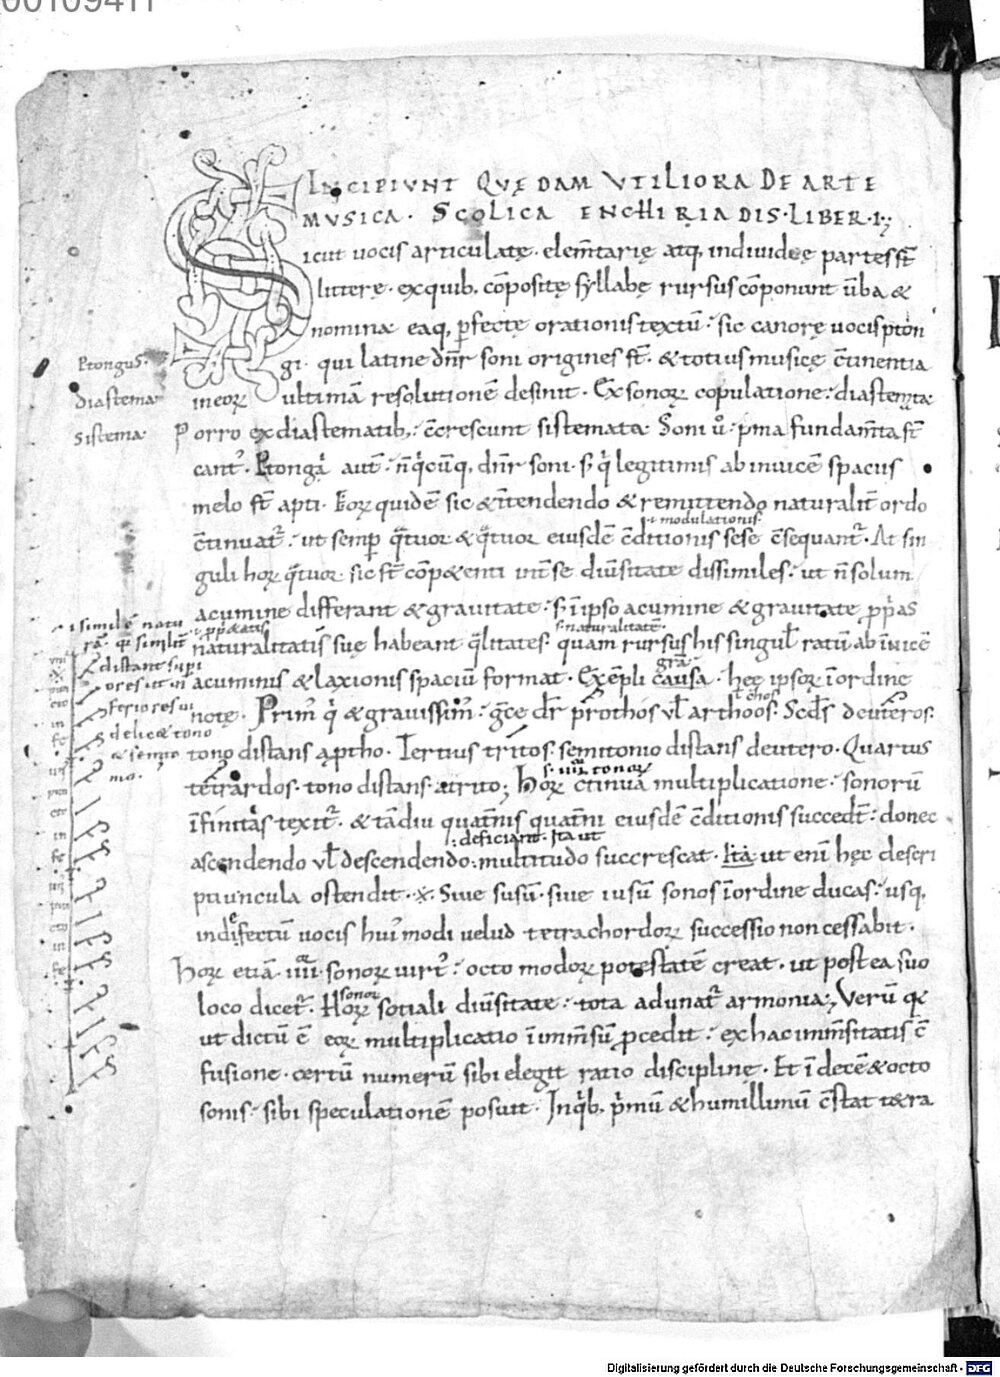 00109411
INCIPIUNT QUĘDAM UTILIORA DE ARTE
MUSICA · SCOLICA ENCHIRIADIS · LIBER · I;
Sicut uocis articulatę · elem̄tarię atq; indiuidęe partes st̄
litterę · ex quib; cōpositę syllabę rursus cōponunt ūba &
nomina eaq; ꝑfectę orationis textū : sic canorę uocis pton
gi · qui latine dn̄r soni origines st̄ · & totius musicę c̄tinentia
in eoꝝ ultimā resolutionē desinit · Ex sonoꝝ copulatione : diastemata
Porro ex diastematib; : c̄crescunt sistemata · Soni u͛o : p̄ma fundam̄ta st̄
cant᷒ · Ptongi aut̄ : n̄ q̇cūq; dn̄r soni · s; q̇ legitimis ab inuicē spaciis
melo st̄ apti · Eoꝝ quidē sic & īntendendo & remittendo naturalit̄ ordo
i· modulationis
c̄tinuat᷒ : ut semꝑ q̄tuor & q̄tuor eiusdē c̄ditionis sese c̄sequant᷒ · At sin
guli hoꝝ q̄tuor sic st̄ cōp&enti int̄ se diūsitate dissimiles : ut n̄ solum
acumine differant & grauitate : s; ī ipso acumine & grauitate ꝓp̄as
s· naturalitatē
naturalitatis suę habeant q̄litates · quam rursus his singul̄ ratū ab īuicē
gra
acuminis & laxionis spaciū format · Exēpli causa · hęc ipsoꝝ ī ordine
chos
notę · Prim᷒ q̇ & grauissim᷒ : gc̄e dr̄ prothos ul̄ arthoos · Scd̄s deuteros
tono distans a ptho · Tertius tritos semitonio distans deutero · Quartus
s· iiiior tonoꝝ
tetrardos · tono distans a trito; hoꝝ c̄tinua multiplicatione · sonorū
īfinitas texit᷒ · & tādiu quat̄nis quat̄ni eiusdē c̄ditionis succedt̄ : donec
: deficiant · Ita ut
ascendendo ul̄ descendendo : multitudo succrescat · Ita ut enī hęc descri
ptiuncula ostendit · x · Siue susū · siue iusū sonos ī ordine ducas : usq;
indefectū uocis hui᷒modi uelud tetrachordoꝝ successio non cessabit ·
hoꝝ etiā · iiiior · sonoꝝ uirt᷒ : octo modoꝝ potestatē creat · ut postea suo
sonoꝝ
loco dicet᷒ · Hoꝝ sotiali diūsitate : tota adunat᷒ armonia; Verū qa
ut dictū ē eoꝝ multiplicatio īmm̄sū p̄cedit : ex hac imm̄sitatis c̄
fusione · certū numerū sibi elegit ratio disciplinę · Et ī decē & octo
sonis : sibi speculationē posuit · In qb; p̄mū & humillimū c̄stat t&ra
Ptongus·
Diastema·
Sistema·
i similē natu
rā · q̄ similit̄
distant supi
ores ut n̄
feriores ui
delic& tono
& semito
Digitalisierung gefördert durch die Deutsche Forschungsgemeinschaft · DFG